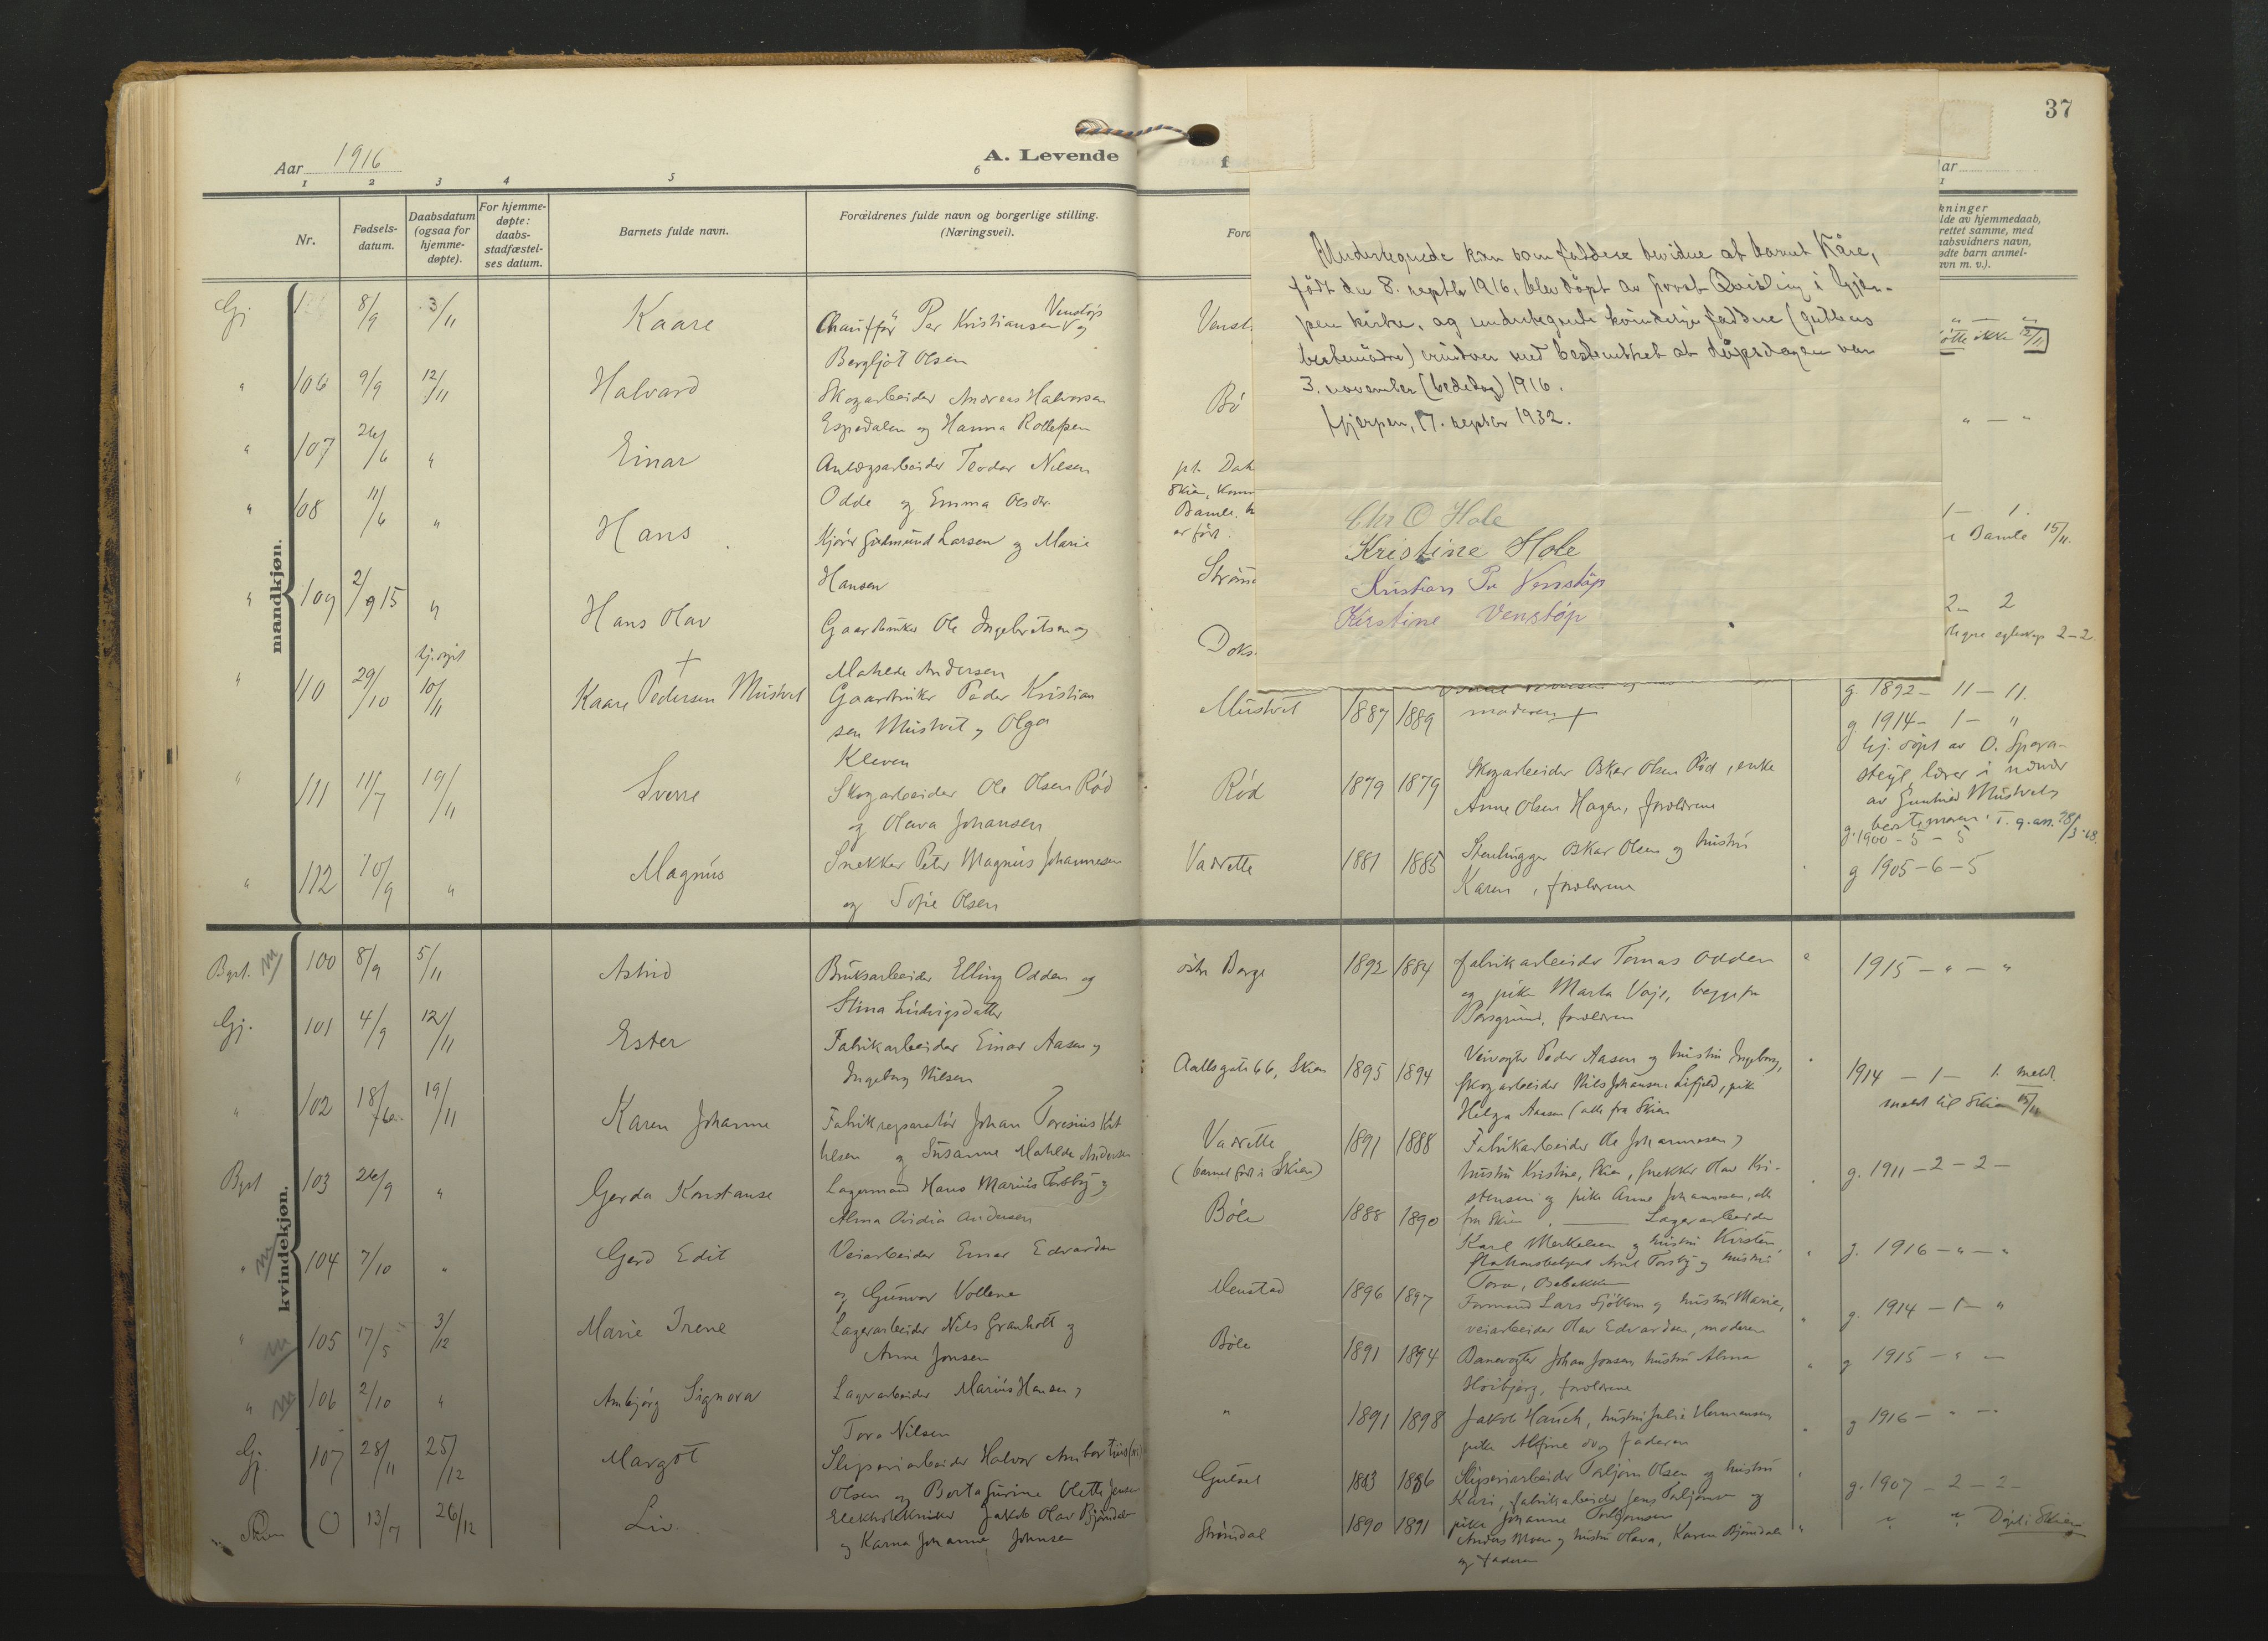 37
Aar 1916
A. Levende
f
ar
1 2 3 4 5 6
Nr.
Fødsels-
datum.
Daabsdatum
(ogsaa for
hjemme-
døpte).
For hjemme-
døpte:
daabs-
stadfæstel-
ses datum.
Barnets fulde navn.
Forældrenes fulde navn og borgerlige stilling.
(Næringsvei).
Ford
kninger
lde av hjemmedaab,
rettet samme, med
aabsvidners navn,
ødte barn anmel-
avn m. v.).
mandkjøn.
Gj 8/9 3/11 Kaare Chauffør Per Kristiansen Venstøp og
Bergljot Olsen
Venst
" 106 9/9 12/11 Halvard Skogarbeider Andreas Halvorsen
Espedalen og Hanna Rollefsen
Bö
" 107 26/6 " Einar Anlægsarbeider Teodor Nilsen
Odde og Emma Olsdtr.
pt. Dal
Skien,
Bamle.
er ført.
" 108 11/6 " Hans Kjører Gudmund Larsen og Marie
Hansen
" 109 2/9 15 " Hans Olav Gaardbruker Ole Ingebretsen og
Matilde Andersen
" 110 29/10 hj.døpt 10/11 Kaare Pedersen Mustvet Gaardbruker Peder Kristian
sen Mustvet og Olga
Kleven
Mustvet 1887 1889 moderen +
" 111 11/7 19/11 Sverre Skogarbeider Ole Olsen Rød
og Olava Johansen
Rød 1879 1879 Skogarbeider Oskar Olsen Rød, enke
Anne Olsen Hagen, forældrene
" 112 10/9 " Magnus Snekker Peter Magnus Johannesen
og Sofie Olsen
Vadrette 1881 1885 Stenhugger Oskar Olsen og hustru
Karen, forældrene
Undertegnede kan som faddere bevidne at barnet Kåre,
født den 8. septbr 1916, blev døpt av prost Qvisling i Gjer-
pen kirke, og undertegnede kvindelige faddere (guttens
bestemødre) erindrer med bestemthet at dåpsdagen var
3. november (bededag) 1916.
Gjerpen, 17. septbr 1932.
Chr O Hole
Kristine Hole
Kristian Pr Venstøp
Kirstine Venstøp
ikke 12/11
1 - 1.
Bamle 15/11.
2 - 2
2-2.
g. 1892 - 11 - 11.
g 1914 - 1 - "
hj. døpt av O. Spora-
støyl, lærer i nærvær
av Gunhild Mustvet,
bestemoren.
g. 1900 - 5 - 5
g 1905 - 6 - 5
kvindekjøn.
Bgst. 100 8/9 5/11 Astrid Bruksarbeider Elling Odden og
Stina Ludvigsdatter
østre Borge 1892 1884 fabrikarbeider Tomas Odden
og pike Marta Voje, begge fra
Porsgrund, forældrene
1915 - " - "
Gj. 101 4/9 12/11 Ester Fabrikarbeider Einar Aasen og
Ingeborg Nilsen
Aallsgate 66, Skien 1895 1894 Veivogter Peder Aasen og hustru Ingeborg,
skogarbeider Nils Johansen Lifjeld, pike
Helga Aasen (alle fra Skien
1914 - 1 - 1. meldt
meldt til Skien 15/11
" 102 18/6 19/11 Karen Johanne Fabrikreparatør Johan Toresius Ket
tilsen og Susanne Matilde Andersen
Vadrette
(barnet født i Skien)
1891 1888 Fabrikarbeider Ole Johannesen og
hustru Kristine, Skien, snekker Olav Kri-
stensen og pike Anne Johannesen, alle
fra Skien
g. 1911 - 2 - 2 -
Bgst 103 26/9 " Gerda Konstanse Lagermand Hans Marius Torsby og
Alma Ovidia Andersen
Böle 1888 1890 Lagerarbeider
Karl Merkelsen og hustru Kirsten,
Stationsbetjent Arnt Torsby og hustru
Tora, Osebakken
g. 1916 - " - "
" 104 7/10 " Gerd Edit Veiarbeider Einar Edvardsen
og Gunvor Vollene
Menstad 1896 1897 Formand Lars Sjøthun og hustru Marie,
veiarbeider Olav Edvardsen, moderen
g. 1914 - 1 - "
" 105 17/5 3/12 Marie Irene Lagerarbeider Nils Granholt og
Anne Jonsen
Böle 1891 1894 Banevogter Johan Jonsen, hustru Alma
Høibjerg, forældrene
g 1915 - " -
" 106 2/10 " Ambjørg Signora Lagerarbeider Marius Hansen og
Tora Nilsen
" 1891 1898 Jakob Hauch, hustru Julie Hermansen,
pike Alfine og faderen
g 1916 - " -
Gj. 107 28/11 25/12 Margot Sliperiarbeider Halvor Ambortius
Olsen og Berta Gurine Olette Jensen
Gulset 1883 1886 Sliperiarbeider Torbjørn Olsen og hustru
Kari, fabrikarbeider Jens Torbjørnsen og
pike Johanne Torbjørnsen
g. 1907 - 2 - 2 -
Skien 0 13/7 26/12 Liv Elektrotekniker Jakob Olav Bjørndalen
og Karna Johanne Johnsen
Strømdal 1890 1891 Anders Moen og hustru Olava, Karen Bjørndalen
og faderen
" " Døpt i Skien